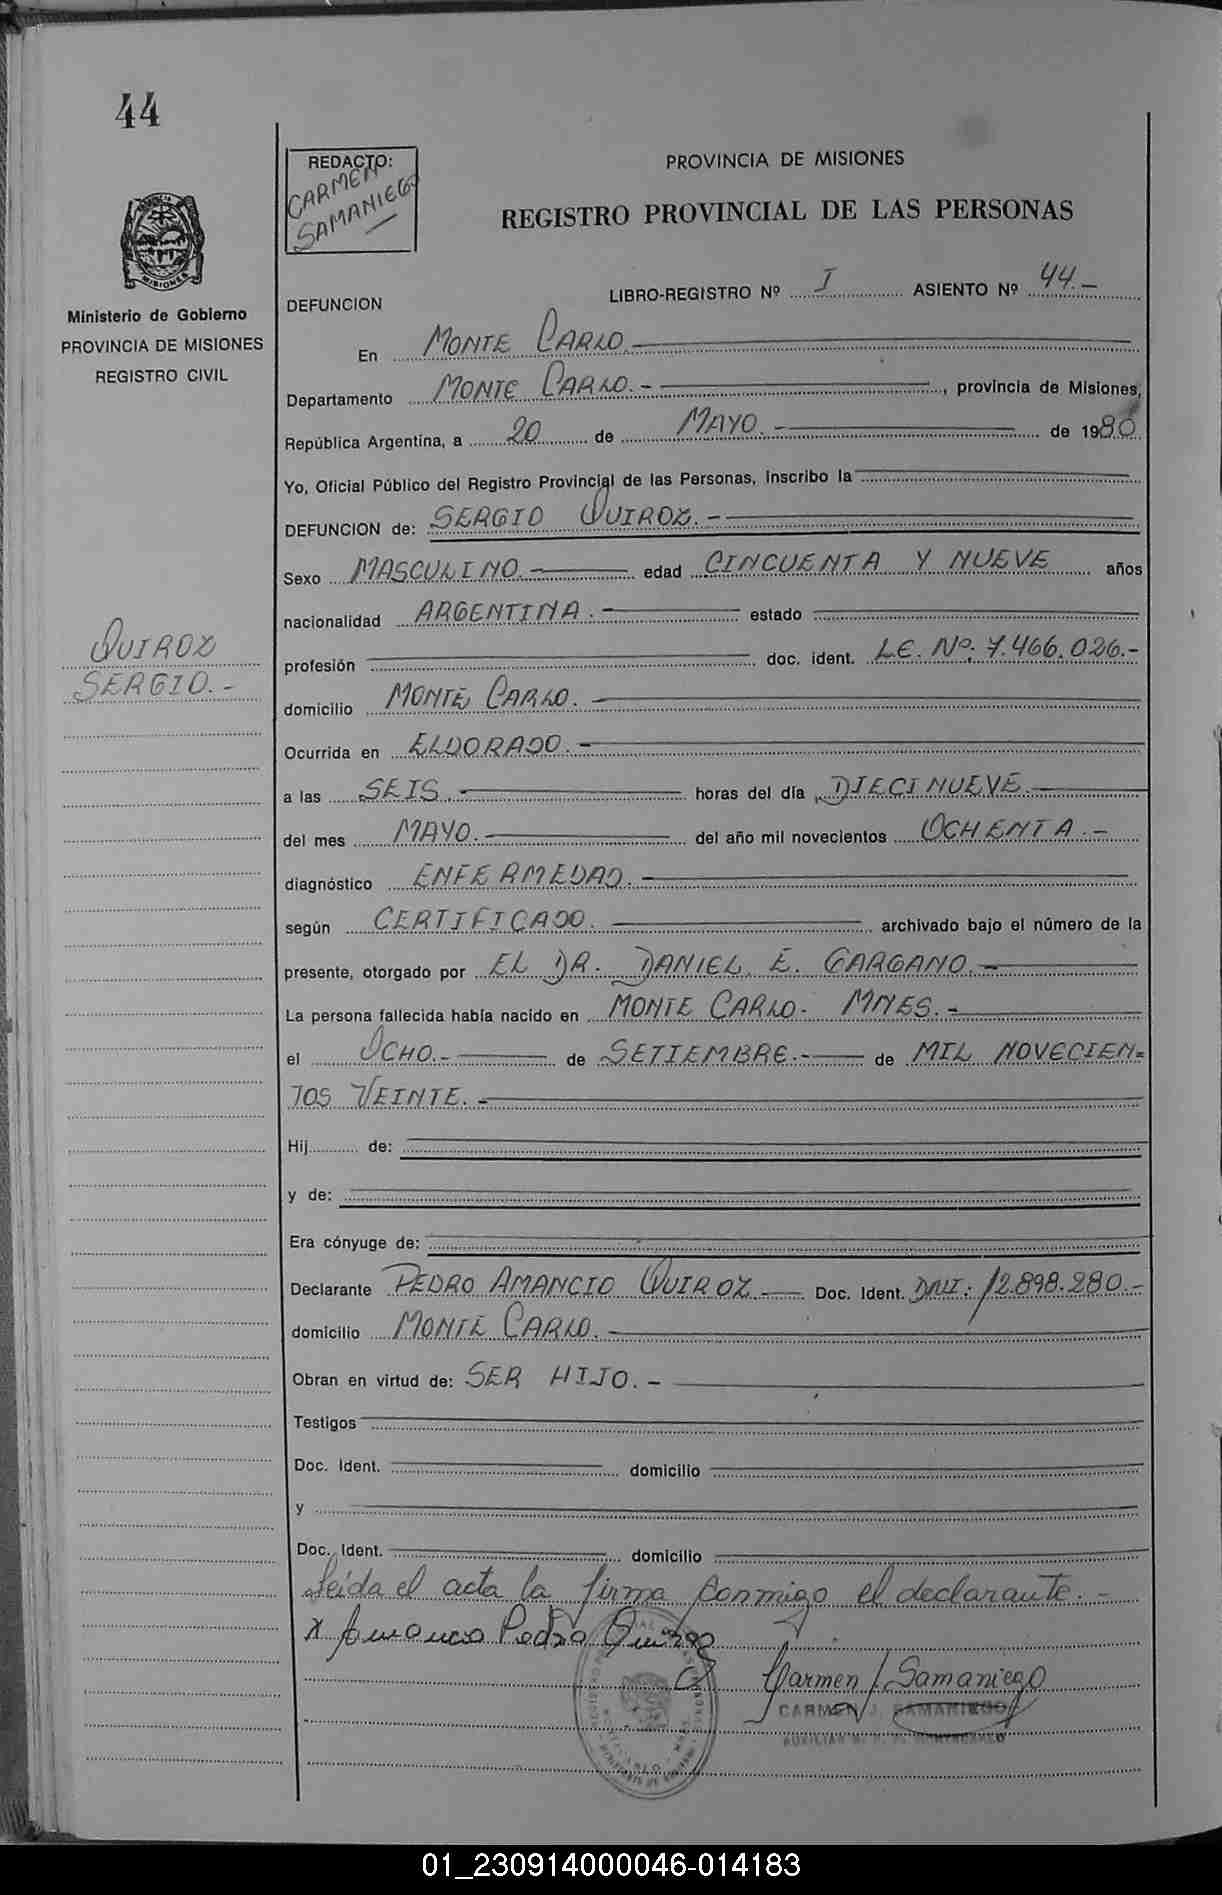 44
REDACTO:
CARMEN
SAMANIEGO
PROVINCIA DE MISIONES
REGISTRO PROVINCIAL DE LAS PERSONAS
MISIONES
Ministerio de Gobierno
PROVINCIA DE MISIONES
REGISTRO CIVIL
DEFUNCION
LIBRO-REGISTRO Nº I ASIENTO Nº 44.-
En MONTE CARLO.
Departamento MONTE CARLO.- , provincia de Misiones,
República Argentina, a 20 de MAYO.- de 1980
Yo, Oficial Público del Registro Provincial de las Personas, inscribo la
DEFUNCION de: SERGIO QUIROZ.-
Sexo MASCULINO.- edad CINCUENTA Y NUEVE años
nacionalidad ARGENTINA.- estado
QUIROZ
SERGIO.-
profesión doc. ident. L.E. Nº: 7.466.026.-
domicilio MONTE CARLO.-
Ocurrida en ELDORADO.-
a las SEIS.- horas del día DIECINUEVE
del mes MAYO.- del año mil novecientos OCHENTA.-
diagnóstico ENFERMEDAD.-
según CERTIFICADO. archivado bajo el número de la
presente, otorgado por EL DR. DANIEL E. GARGANO.-
La persona fallecida había nacido en MONTE CARLO- MNES.-
el OCHO.- de SETIEMBRE.- de MIL NOVECIEN=
TOS VEINTE.-
Hij de:
y de:
Era cónyuge de:
Declarante PEDRO AMANCIO QUIROZ.- Doc. Ident. DNI: 12.898.280.-
domicilio MONTE CARLO.-
Obran en virtud de: SER HIJO.-
Testigos
Doc. Ident. domicilio
y
Doc. Ident. domicilio
Leída el acta la firma conmigo el declarante.-
x Amancio Pedro Quiroz
Carmen J. Samaniego
CARMEN J. SAMANIEGO
01_230914000046-014183